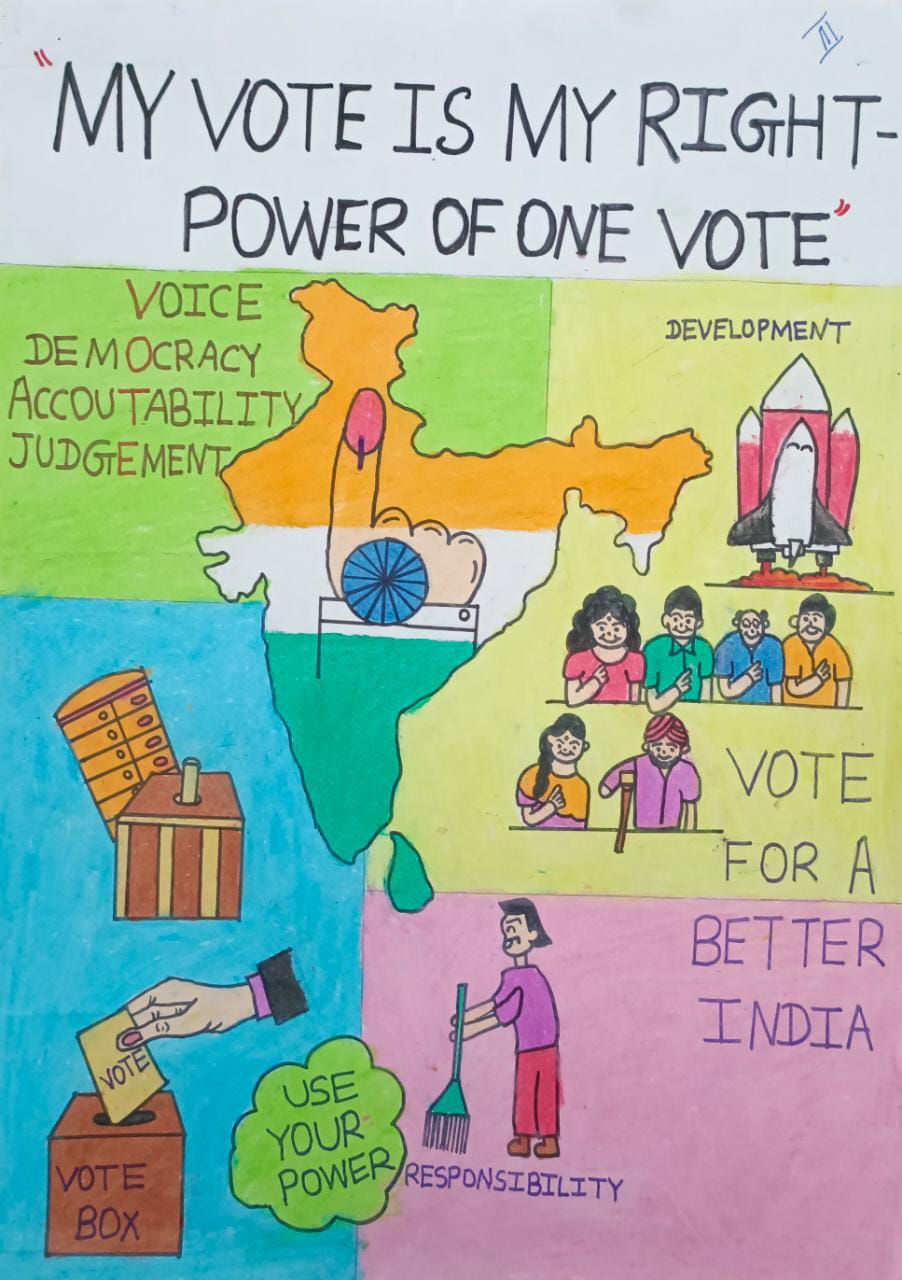 III
"MY VOTE IS MY RIGHT-
POWER OF ONE VOTE"
VOICE
DEMOCRACY
ACCOUTABILITY
JUDGEMENT
DEVELOPMENT
VOTE
FOR A
BETTER
INDIA
VOTE
VOTE
BOX
USE
YOUR
POWER
RESPONSIBILITY